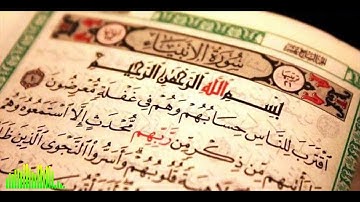 سُورَةُ الْأَنْبِيَاءِ
بِسْمِ اللَّهِ الرَّحْمَٰنِ الرَّحِيمِ
اقْتَرَبَ لِلنَّاسِ حِسَابُهُمْ وَهُمْ فِي غَفْلَةٍ مُعْرِضُونَ
مِنْ ذِكْرٍ مِنْ رَبِّهِمْ مُحْدَثٍ إِلَّا اسْتَمَعُوهُ وَهُمْ
قُلُوبُهُمْ وَأَسَرُّوا النَّجْوَى الَّذِينَ